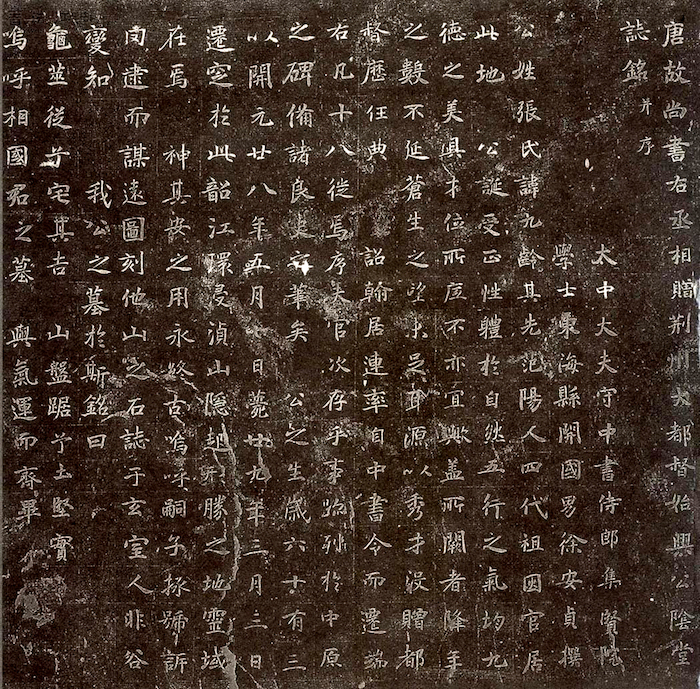 唐故尚書右丞相贈荊州大都督始興公陰堂
誌銘并序
太中大夫守中書侍郎集賢院
學士東海縣開國男徐安貞撰
公姓張氏諱九齡其先范陽人四代祖因官居
此地 公誕受正性體於自然五行之氣均九
德之美具才位所底不亦宜歟蓋所闕者降年
之數不延蒼生之望未足耳源以秀才沒贈都
督歷任典 詔翰居連率自中書令而遷端
右凡十八徙焉序夫官次存乎事跡列於中原
之碑備諸良史之筆矣 公之生歲六十有三
以開元廿八年五月 日薨廿九年三月三日
遷窆於此韶江環浸湞山隱起形勝之地靈域
在焉 神其安之用永終古嗚呼嗣子拯號訴
罔逮而謀遠圖刻他山之石誌于玄室人非谷
變知 我公之墓於斯銘曰
龜筮從兮宅其吉 山盤踞兮土堅實
嗚呼相國君之墓 與氣運而齊畢